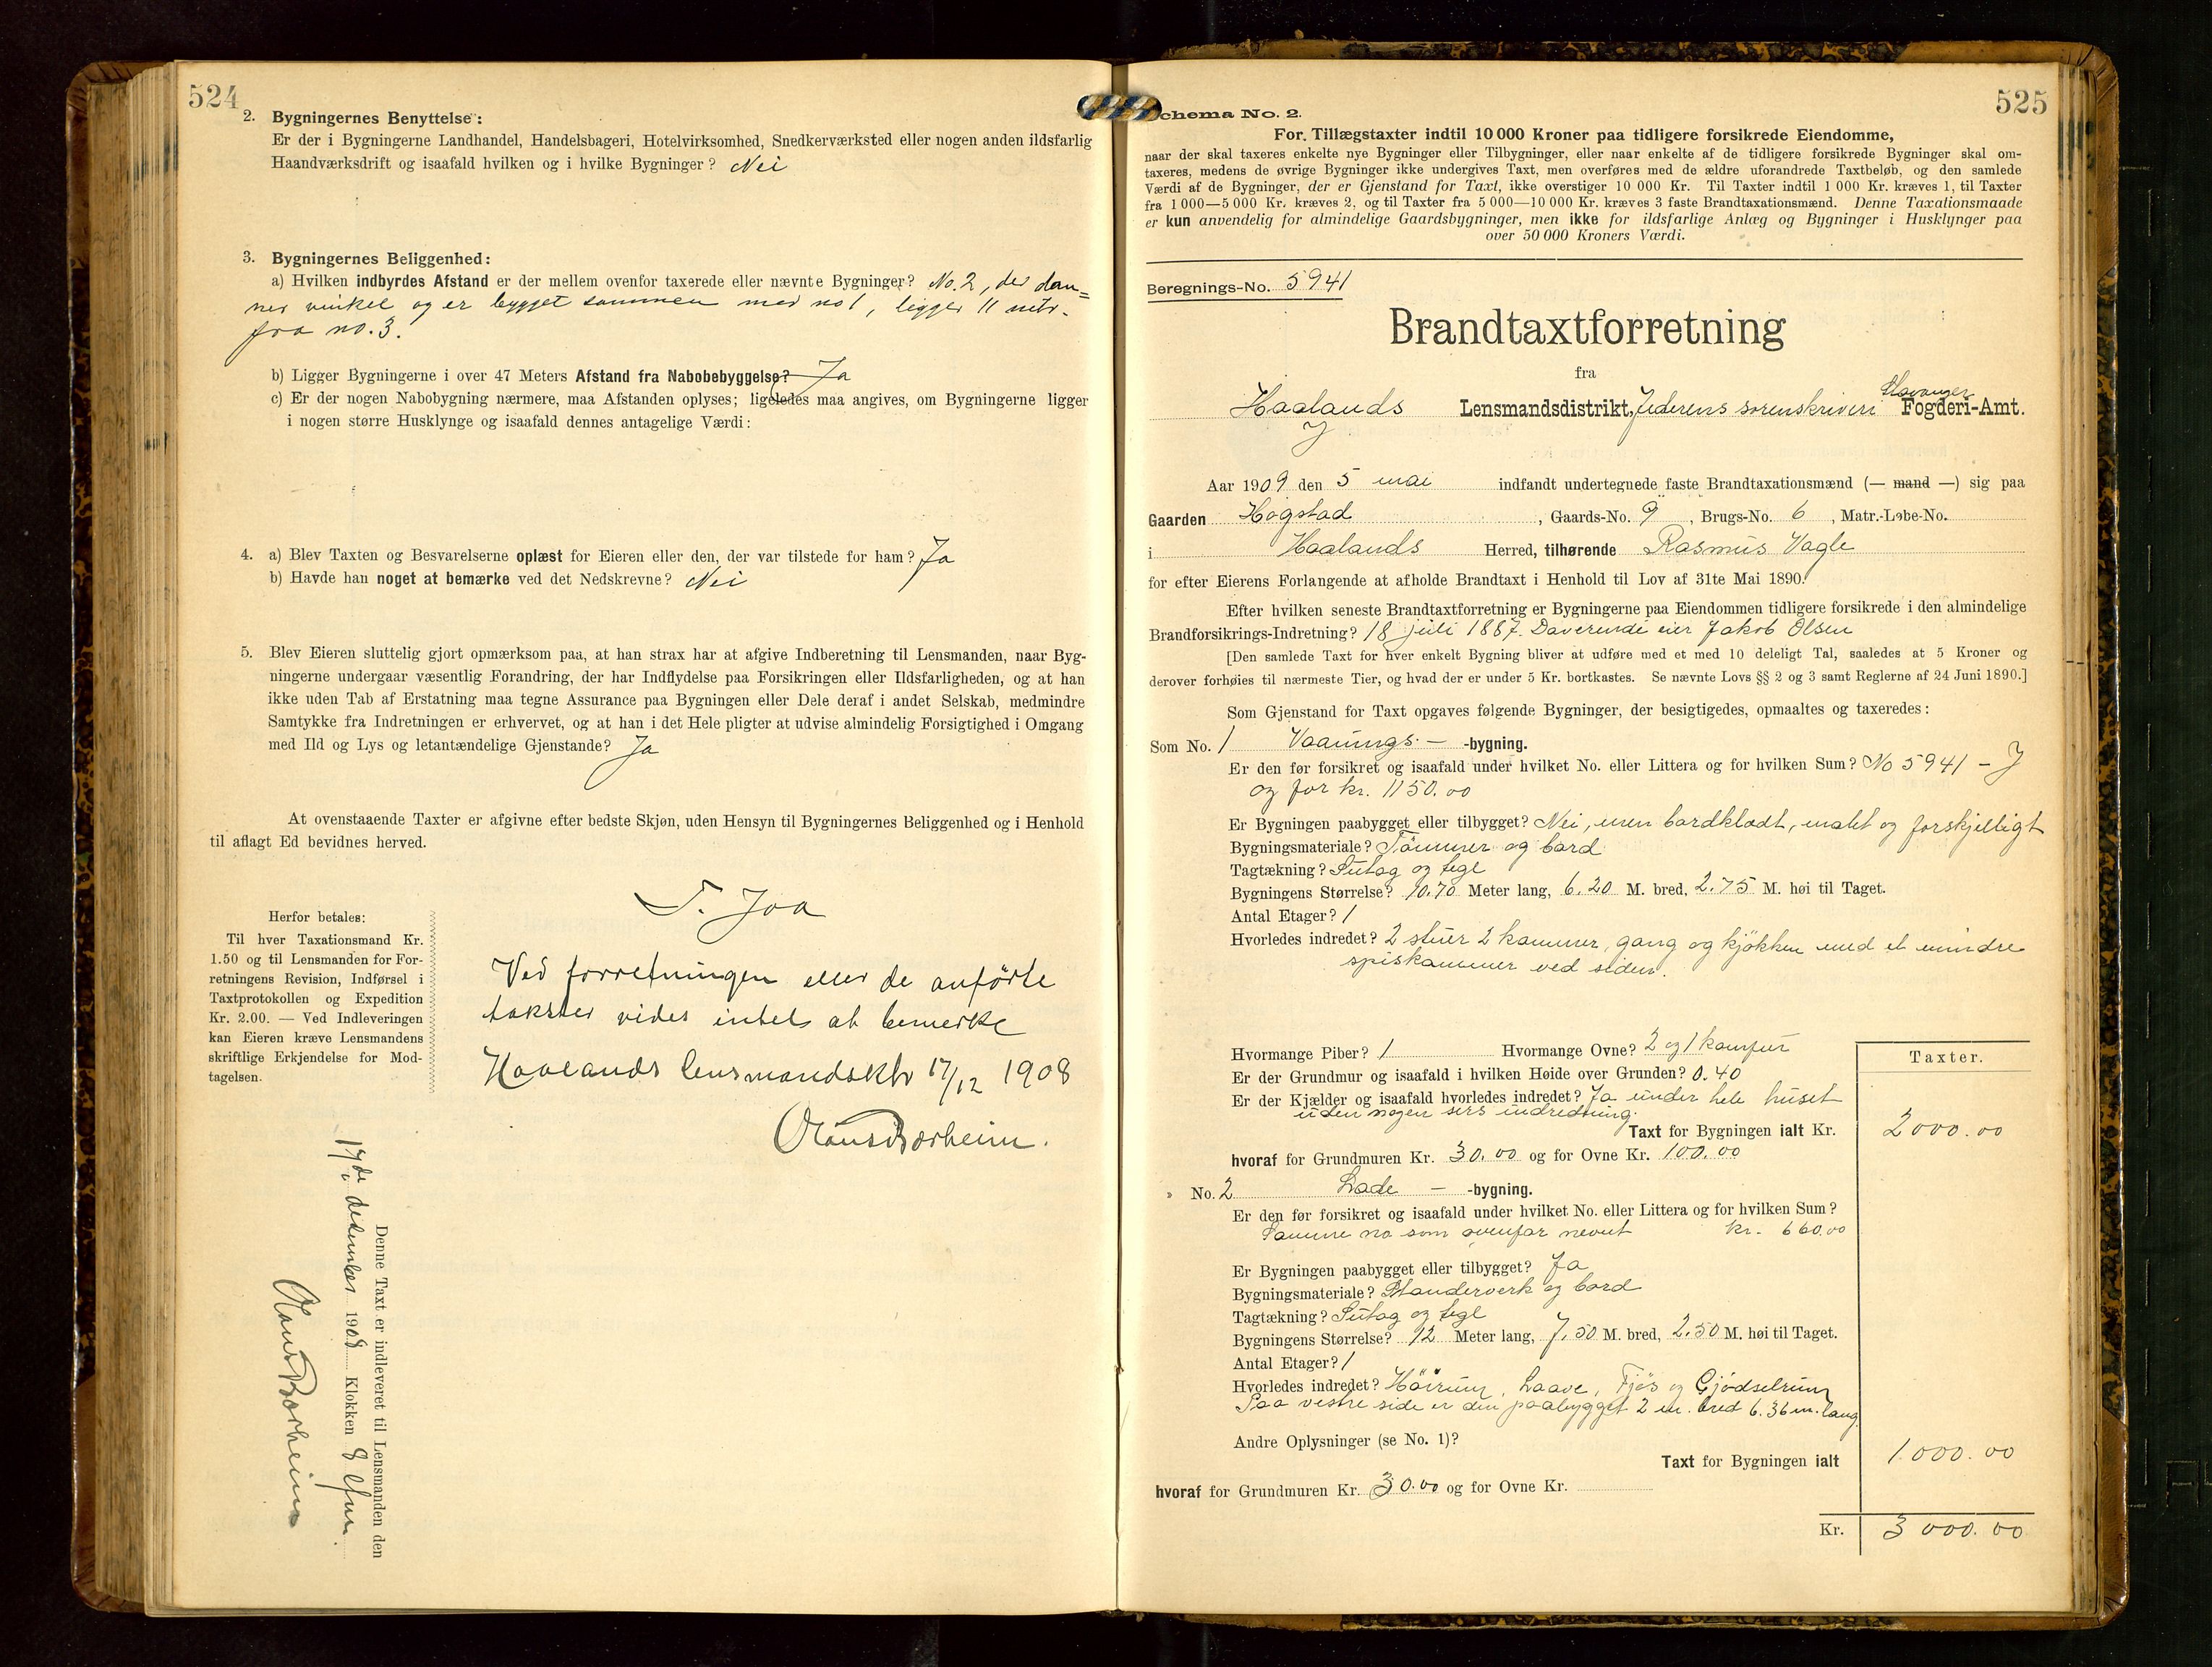 524
2. Bygningernes Benyttelse:
Er der i Bygningerne Landhandel, Handelsbageri, Hotelvirksomhed, Snedkerværksted eller nogen anden ildsfarlig
Haandværksdrift og isaafald hvilken og i hvilke Bygninger? Nei
3. Bygningernes Beliggenhed:
a) Hvilken indbyrdes Afstand er der mellem ovenfor taxerede eller nævnte Bygninger? No. 2, der dan=
ner vinkel og er bygget sammen med no 1, ligger 11 metr.
fra no. 3.
b) Ligger Bygningerne i over 47 Meters Afstand fra Nabobebyggelse? Ja
c) Er der nogen Nabobygning nærmere, maa Afstanden oplyses; ligeledes maa angives, om Bygningerne ligger
i nogen større Husklynge og isaafald dennes antagelige Værdi:
4. a) Blev Taxten og Besvarelserne oplæst for Eieren eller den, der var tilstede for ham? Ja
b) Havde han noget at bemærke ved det Nedskrevne? Nei
5. Blev Eieren sluttelig gjort opmærksom paa, at han strax har at afgive Indberetning til Lensmanden, naar Byg-
ningerne undergaar væsentlig Forandring, der har Indflydelse paa Forsikringen eller Ildsfarligheden, og at han
ikke uden Tab af Erstatning maa tegne Assurance paa Bygningen eller Dele deraf i andet Selskab, medmindre
Samtykke fra Indretningen er erhvervet, og at han i det Hele pligter at udvise almindelig Forsigtighed i Omgang
med Ild og Lys og letantændelige Gjenstande? Ja
At ovenstaaende Taxter er afgivne efter bedste Skjøn, uden Hensyn til Bygningernes Beliggenhed og i Henhold
til aflagt Ed bevidnes herved.
T. Joa
Herfor betales:
Til hver Taxationsmand Kr.
1.50 og til Lensmanden for For-
retningens Revision, Indførsel i
Taxtprotokollen og Expedition
Kr. 2.00. — Ved Indleveringen
kan Eieren kræve Lensmandens
skriftlige Erkjendelse for Mod-
tagelsen.
Ved forretningen eller de anførte
takster vides intet at bemerke
Haalands lensmandsktr 17/12 1908
Olaus Borheim.
Denne Taxt er indleveret til Lensmanden den
17de december 1908 Klokken 8 efm.
Olaus Borheim
525
Schema No. 2.
For. Tillægstaxter indtil 10 000 Kroner paa tidligere forsikrede Eiendomme,
naar der skal taxeres enkelte nye Bygninger eller Tilbygninger, eller naar enkelte af de tidligere forsikrede Bygninger skal om-
taxeres, medens de øvrige Bygninger ikke undergives Taxt, men overføres med de ældre uforandrede Taxtbeløb, og den samlede
Værdi af de Bygninger, der er Gjenstand for Taxt, ikke overstiger 10 000 Kr. Til Taxter indtil 1 000 Kr. kræves 1, til Taxter
fra 1 000—5 000 Kr. kræves 2, og til Taxter fra 5 000—10 000 Kr. kræves 3 faste Brandtaxationsmænd. Denne Taxationsmaade
er kun anvendelig for almindelige Gaardsbygninger, men ikke for ildsfarlige Anlæg og Bygninger i Husklynger paa
over 50 000 Kroners Værdi.
Beregnings-No. 5941
Brandtaxtforretning
fra
Haalands Lensmandsdistrikt, Jederens sorenskriveri Stavanger Fogderi-Amt.
J
Aar 1909 den 5 mai indfandt undertegnede faste Brandtaxationsmænd (— mand —) sig paa
Gaarden Hogstad, Gaards-No. 9, Brugs-No. 6, Matr.-Løbe-No.
i Haalands Herred, tilhørende Rasmus Vagle
for efter Eierens Forlangende at afholde Brandtaxt i Henhold til Lov af 31te Mai 1890.
Efter hvilken seneste Brandtaxtforretning er Bygningerne paa Eiendommen tidligere forsikrede i den almindelige
Brandforsikrings-Indretning? 18 juli 1887. Daverende eier Jakob Olsen
[Den samlede Taxt for hver enkelt Bygning bliver at udføre med et med 10 deleligt Tal, saaledes at 5 Kroner og
derover forhøies til nærmeste Tier, og hvad der er under 5 Kr. bortkastes. Se nævnte Lovs §§ 2 og 3 samt Reglerne af 24 Juni 1890.]
Som Gjenstand for Taxt opgaves følgende Bygninger, der besigtigedes, opmaaltes og taxeredes:
Som No. 1 Vaanings - -bygning.
Er den før forsikret og isaafald under hvilket No. eller Littera og for hvilken Sum? No 5941 - J
og for kr. 1150.00
Er Bygningen paabygget eller tilbygget? Nei, men bordklædt, malet og forskjelligt
Bygningsmateriale? Tømmer og bord
Tagtækning? Sutag og tegl
Bygningens Størrelse? 10.70 Meter lang, 6.20 M. bred, 2.75 M. høi til Taget.
Antal Etager? 1
Hvorledes indredet? 2 stuer 2 kammer, gang og kjøkken med et mindre
spiskammer ved siden.
Hvormange Piber? 1 Hvormange Ovne? 2 og 1 komfur
Er der Grundmur og isaafald i hvilken Høide over Grunden? 0.40
Er der Kjælder og isaafald hvorledes indredet? Ja under hele huset
uden nogen sers indredning.
Taxter.
Taxt for Bygningen ialt Kr. 2000.00
hvoraf for Grundmuren Kr. 30.00 og for Ovne Kr. 100.00
» No. 2 Lade - -bygning.
Er den før forsikret og isaafald under hvilket No. eller Littera og for hvilken Sum?
Samme no som ovenfor nevnt kr. 660.00
Er Bygningen paabygget eller tilbygget? Ja
Bygningsmateriale? Standerverk og bord
Tagtækning? Sutag og tegl
Bygningens Størrelse? 12 Meter lang, 7.50 M. bred, 2.50 M. høi til Taget.
Antal Etager? 1
Hvorledes indredet? Høirum, Laave, Fjøs og Gjødselrum
Paa vestre side er den paabygget 2 m. bred 6.36 m. lang
Andre Oplysninger (se No. 1)?
Taxt for Bygningen ialt 1.000.00
hvoraf for Grundmuren Kr. 30.00 og for Ovne Kr.
Kr. 3000.00